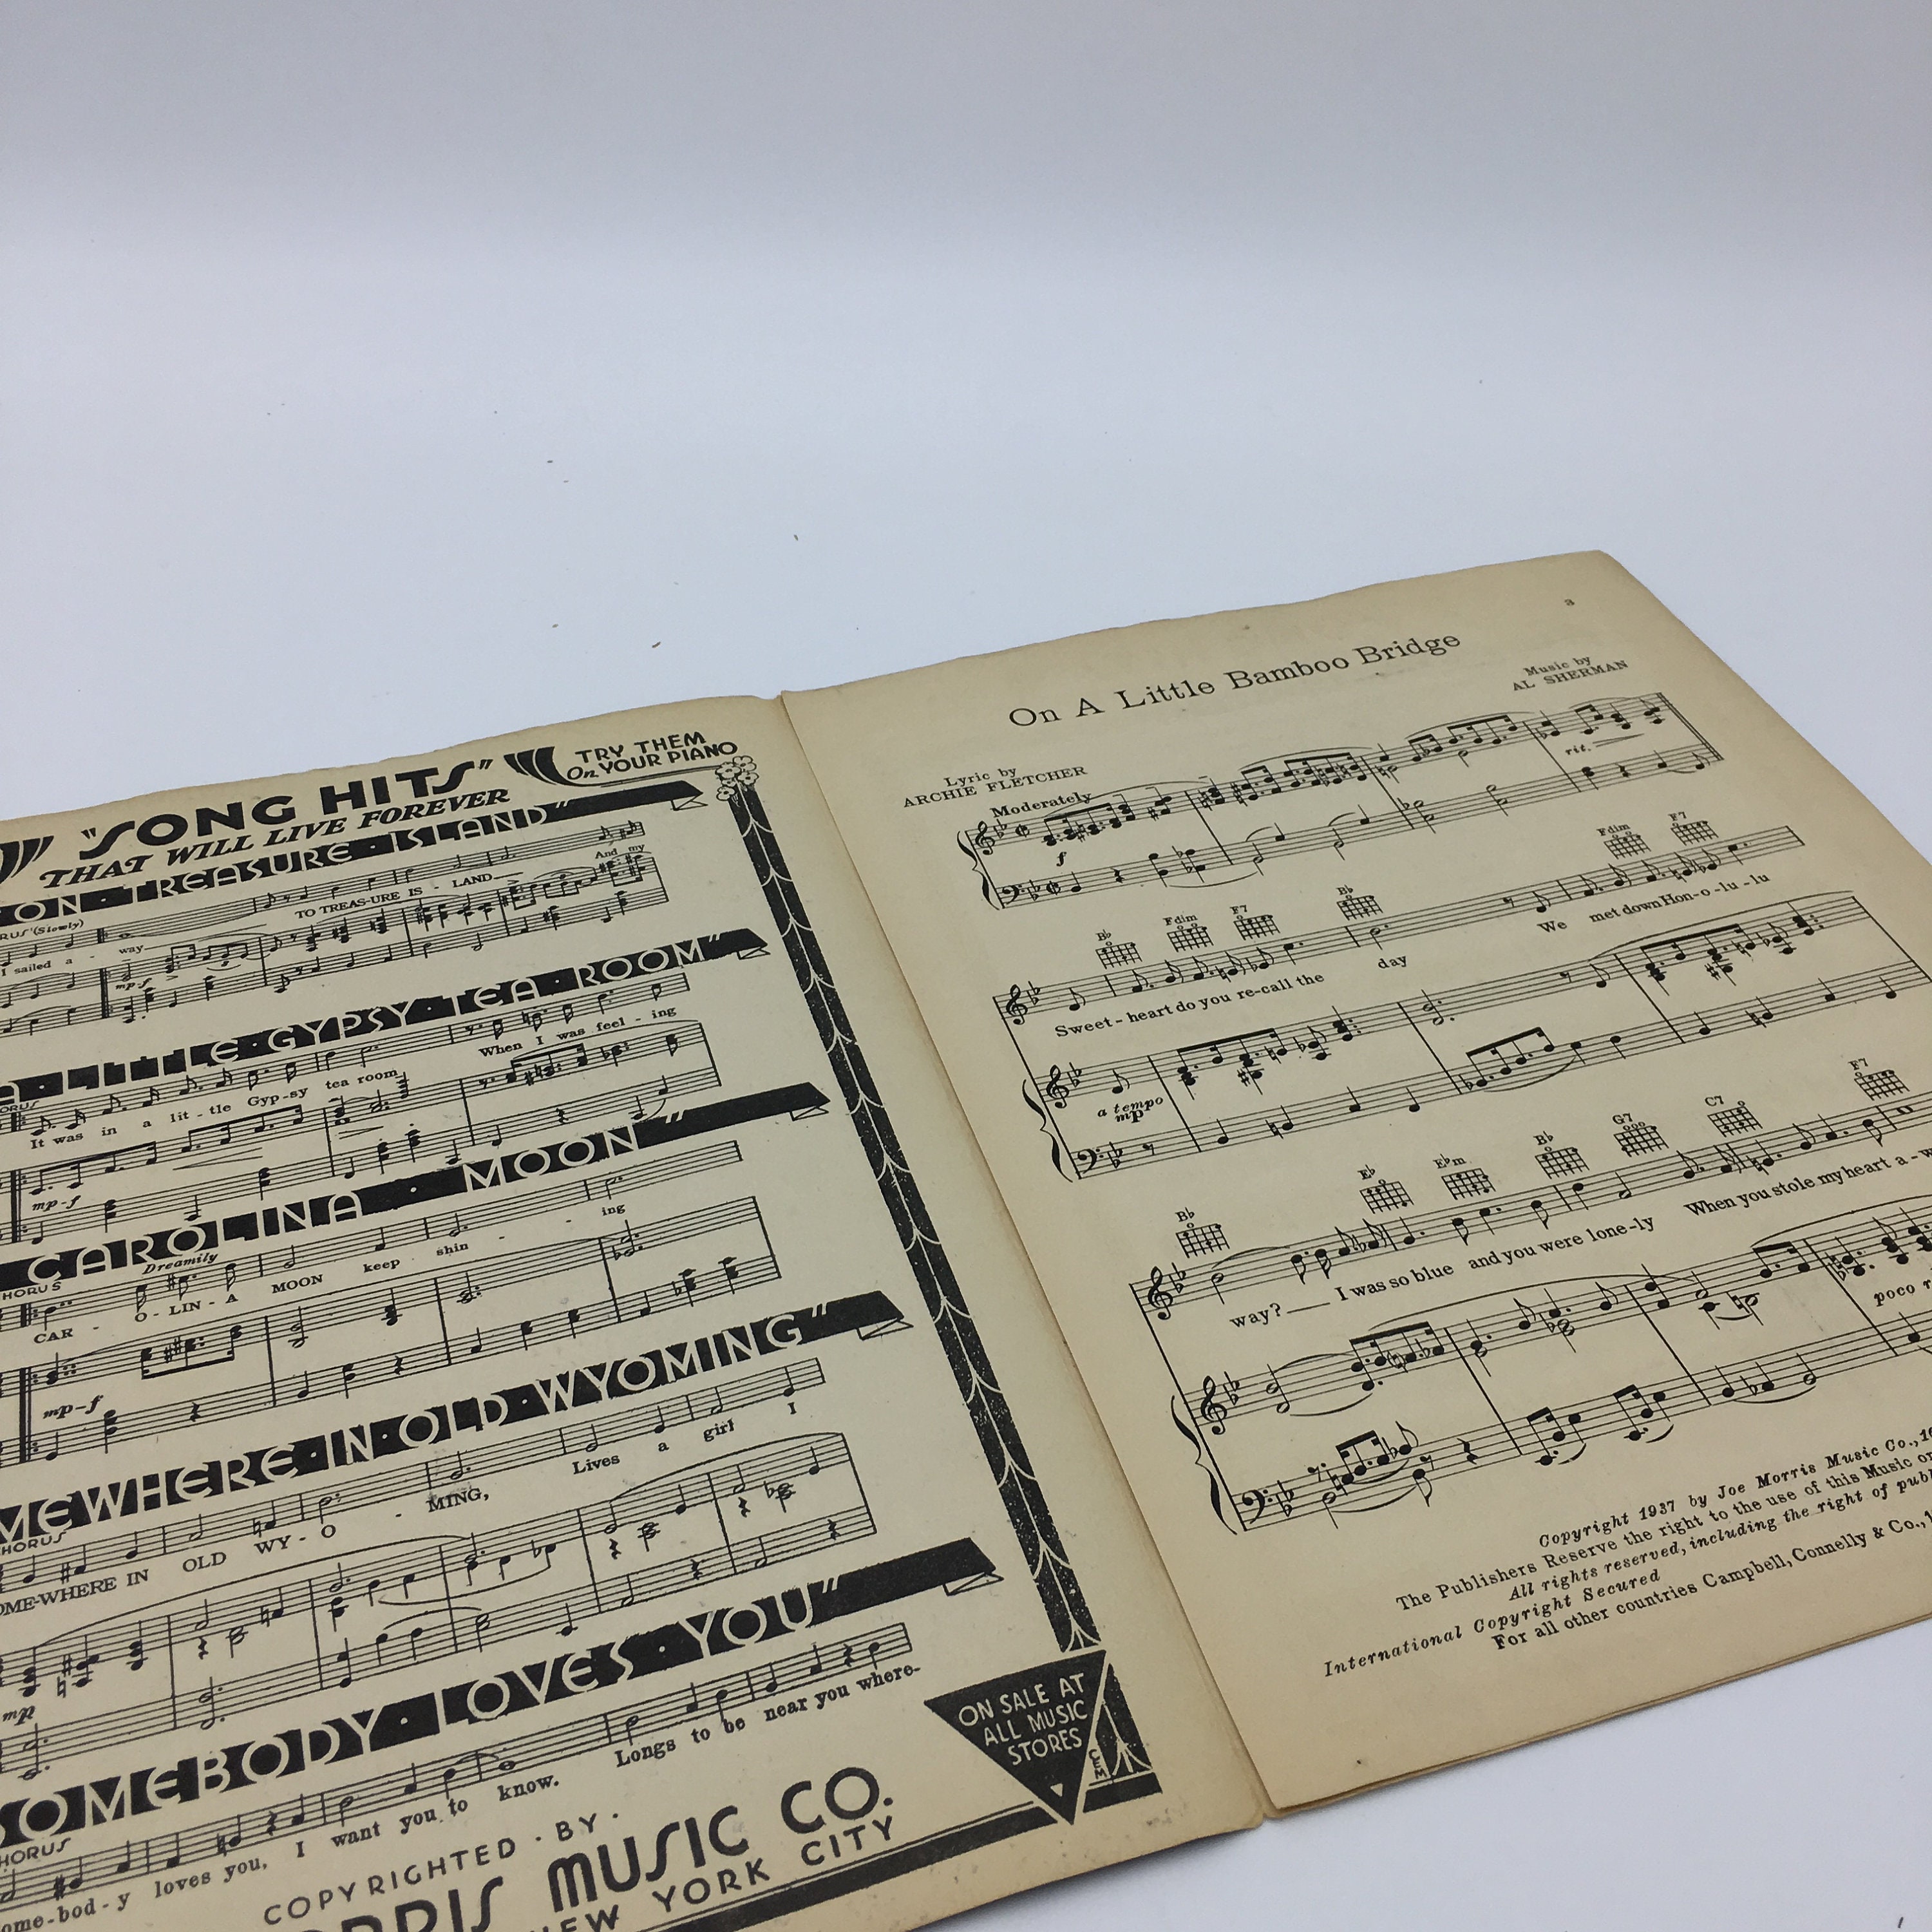 "SONG HITS"
THAT WILL LIVE FOREVER
TRY THEM
On YOUR PIANO
ON · TREASURE · ISLAND"
(Slowly)
I sailed a - way TO TREAS-URE IS - LAND And my
mp-f
A · LITTLE · GYPSY · TEA · ROOM"
It was in a lit - tle Gyp-sy tea room When I was feel - ing
mp-f
CAROLINA · MOON"
CHORUS
Dreamily
CAR - O - LIN - A MOON keep shin - ing
mp-f
MEWHERE · IN · OLD · WYOMING"
CHORUS
OME-WHERE IN OLD WY - O - MING, Lives a girl I
mp
SOMEBODY · LOVES · YOU"
CHORUS
ome-bod-y loves you, I want you to know. Longs to be near you where-
ON SALE AT
ALL MUSIC
STORES
CEM
COPYRIGHTED · BY ·
ORRIS MUSIC CO.
NEW YORK CITY
3
On A Little Bamboo Bridge
Lyric by
ARCHIE FLETCHER
Music by
AL SHERMAN
Moderately
f
rit.
B♭ Fdim F7 B♭ Fdim F7
Sweet - heart do you re-call the day We met down Hon-o-lu-lu
a tempo
mp
B♭ E♭ E♭m B♭ G7 C7 F7
way? I was so blue and you were lone-ly When you stole my heart a-w
poco r
Copyright 1937 by Joe Morris Music Co., 16
The Publishers Reserve the right to the use of this Music or
All rights reserved, including the right of publ
International Copyright Secured
For all other countries Campbell, Connelly & Co., 1